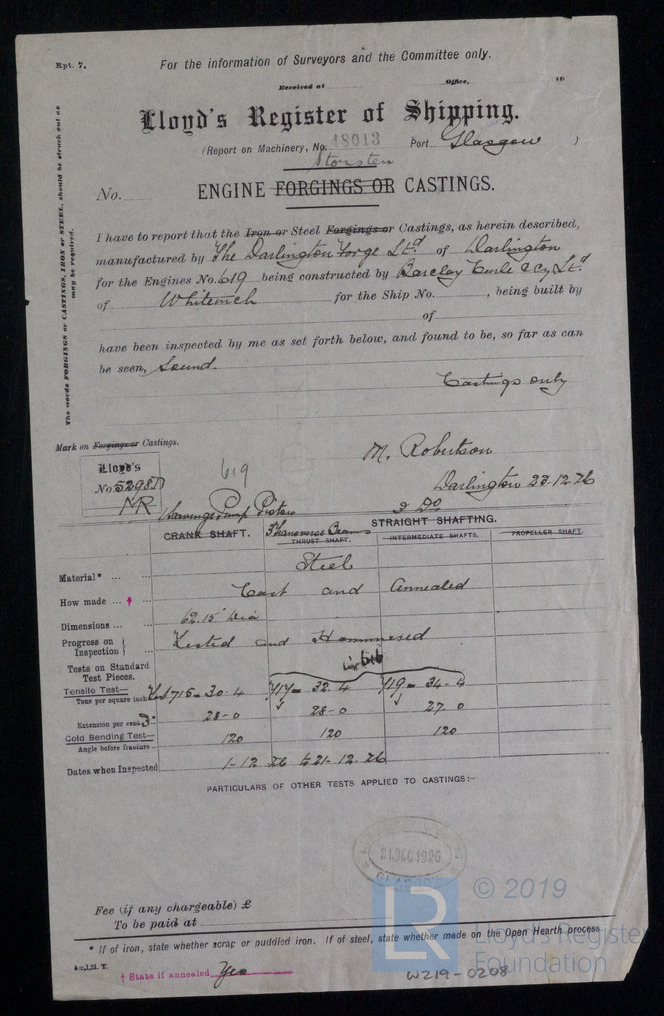 Rpt. 7.
For the information of Surveyors and the Committee only.
Received at Office, 19
Lloyd's Register of Shipping.
(Report on Machinery, No. 48013 Port Glasgow )
Storsten
No. ENGINE FORGINGS OR CASTINGS.
The words FORGINGS or CASTINGS, IRON or STEEL, should be struck out as may be required.
I have to report that the Iron or Steel Forgings or Castings, as herein described,
manufactured by The Darlington Forge Ltd of Darlington
for the Engines No. 619 being constructed by Barclay Curle & Co, Ltd.
of Whiteinch for the Ship No. , being built by
of
have been inspected by me as set forth below, and found to be, so far as can
be seen, Sound.
Castings only
Mark on Forgings or Castings.
M. Robertson
Lloyd's
No. 5298D
MR
619
Darlington 23.12.26
Scavenge Pump Piston
3 Do
STRAIGHT SHAFTING.
CRANK SHAFT. 3 Transverse Beams THRUST SHAFT. INTERMEDIATE SHAFTS. PROPELLER SHAFT.
Material* Steel
How made † Cast and Annealed
Dimensions 62.15" Dia
Progress on Inspection Tested and Hammered
616
Tests on Standard Test Pieces.
Tensile Test— Tons per square inch 715 = 30.4 717 = 32.4 719 = 34.4
Extension per cent 3" 28.0 28.0 27.0
Cold Bending Test— Angle before fracture 120 120 120
Dates when Inspected 1-12-26 to 21-12-26
PARTICULARS OF OTHER TESTS APPLIED TO CASTINGS:-
31 DEC 1926
GLASGOW
Fee (if any chargeable) £
To be paid at
* If of iron, state whether scrap or puddled iron. If of steel, state whether made on the Open Hearth process
† State if annealed Yes
W219-0208
LR
© 2019
Lloyd's Register
Foundation